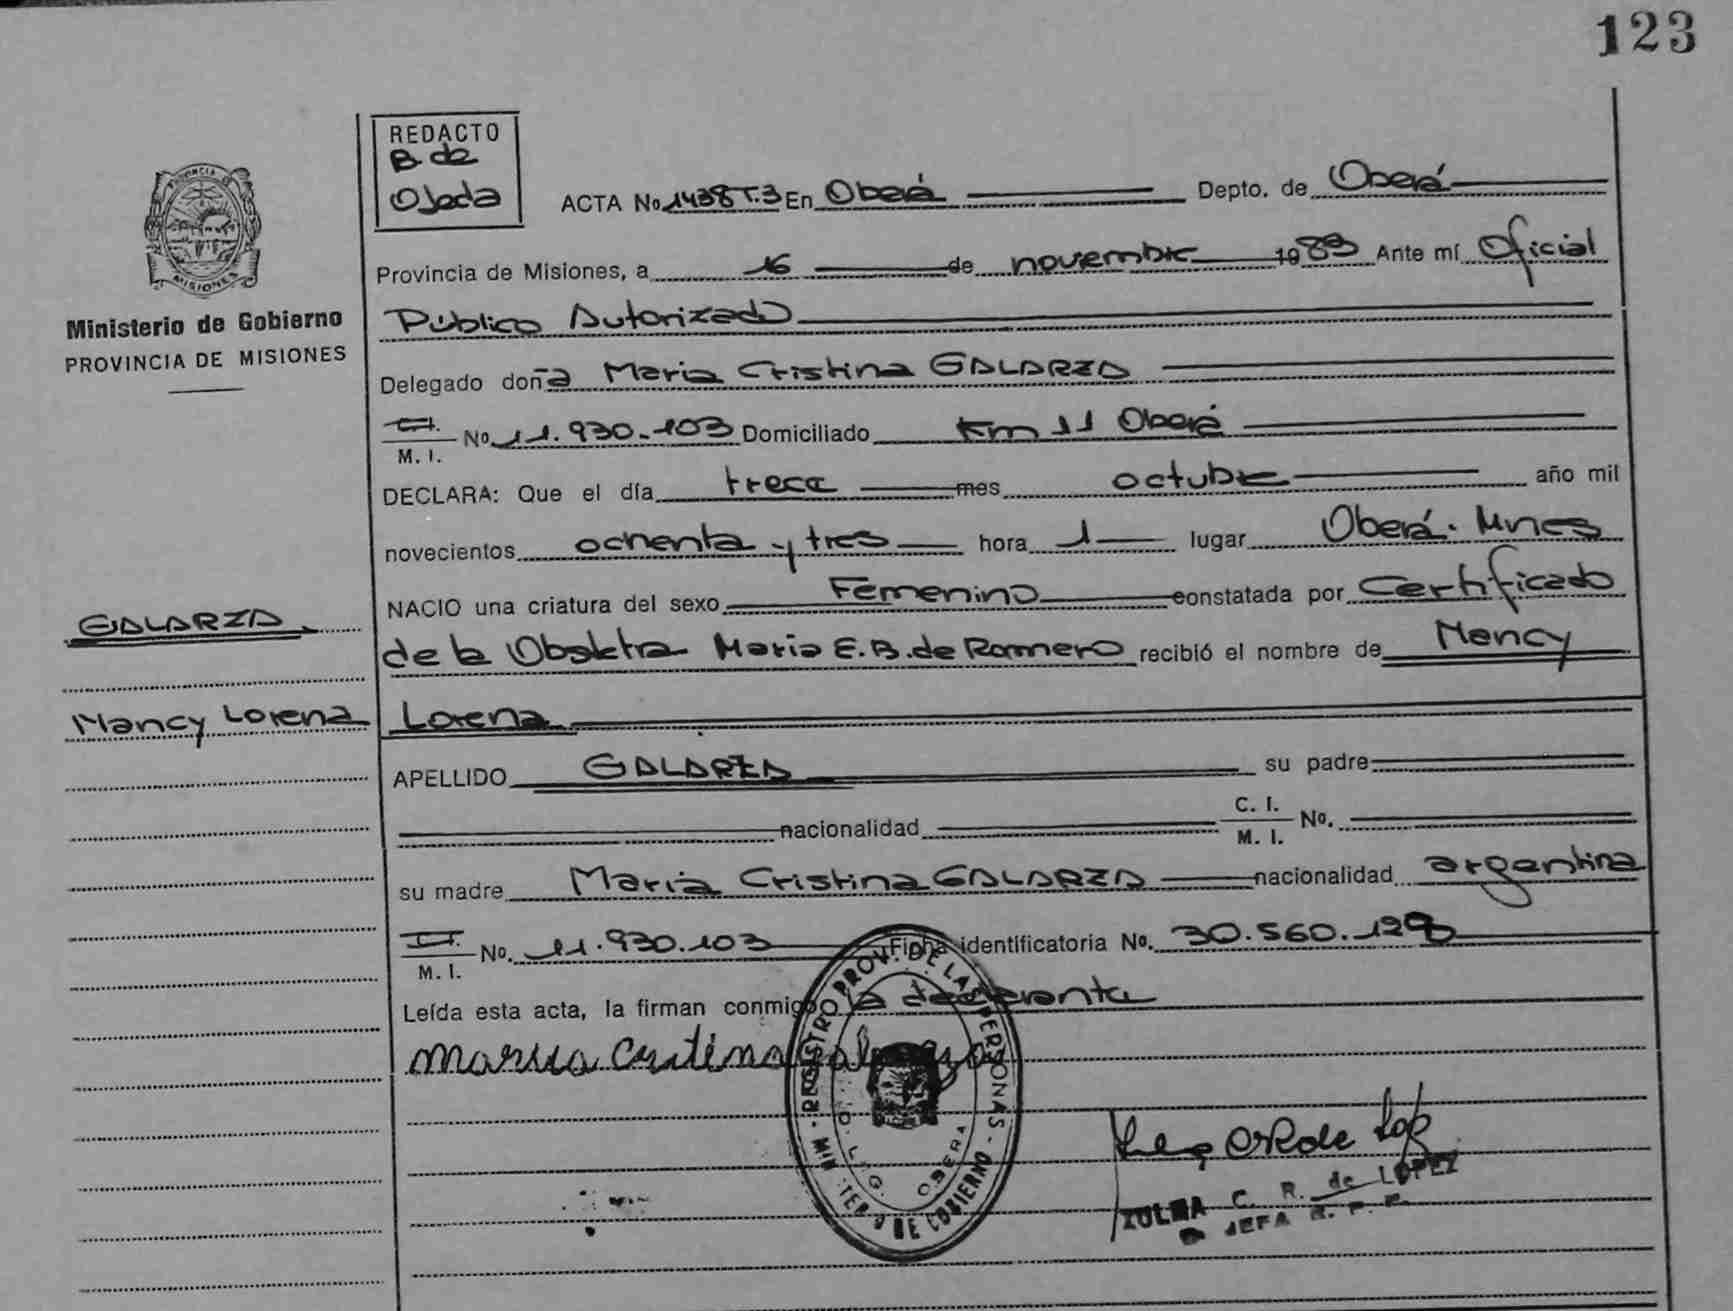 123
REDACTO
B. de
Ojeda
ACTA No 1438 T.3 En Oberá Depto. de Oberá
Provincia de Misiones, a 16 de novembre 1983 Ante mí Oficial
Público Autorizado
Delegado doña Maria Cristina GALARZA
C.I. M. I. No. 11.930.103 Domiciliado Km 11 Oberá
DECLARA: Que el día trece mes octubre año mil
novecientos ochenta y tres hora 1 lugar Oberá. Mnes
NACIO una criatura del sexo Femenino constatada por Certificado
de la Obstetra Maria E. B. de Romero recibió el nombre de Nancy
Lorena
APELLIDO GALARZA su padre
nacionalidad C. I. M. I. No.
su madre Maria Cristina GALARZA nacionalidad argentina
M. I. No. 11.930.103 Ficha identificatoria No. 30.560.129
Leída esta acta, la firman conmigo la declarante
Maria Cristina Galarza
ZULMA C. R. de LOPEZ
JEFA R. P. P.
REGISTRO PROV. DE LAS PERSONAS - MINISTERIO DE GOBIERNO
OBERA
PROVINCIA DE
MISIONES
Ministerio de Gobierno
PROVINCIA DE MISIONES
GALARZA
Nancy Lorena